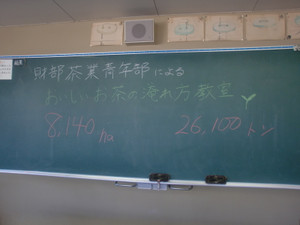 財部茶業青年部による
おいしいお茶の淹れ方教室
8,140 ha 26,100 トン